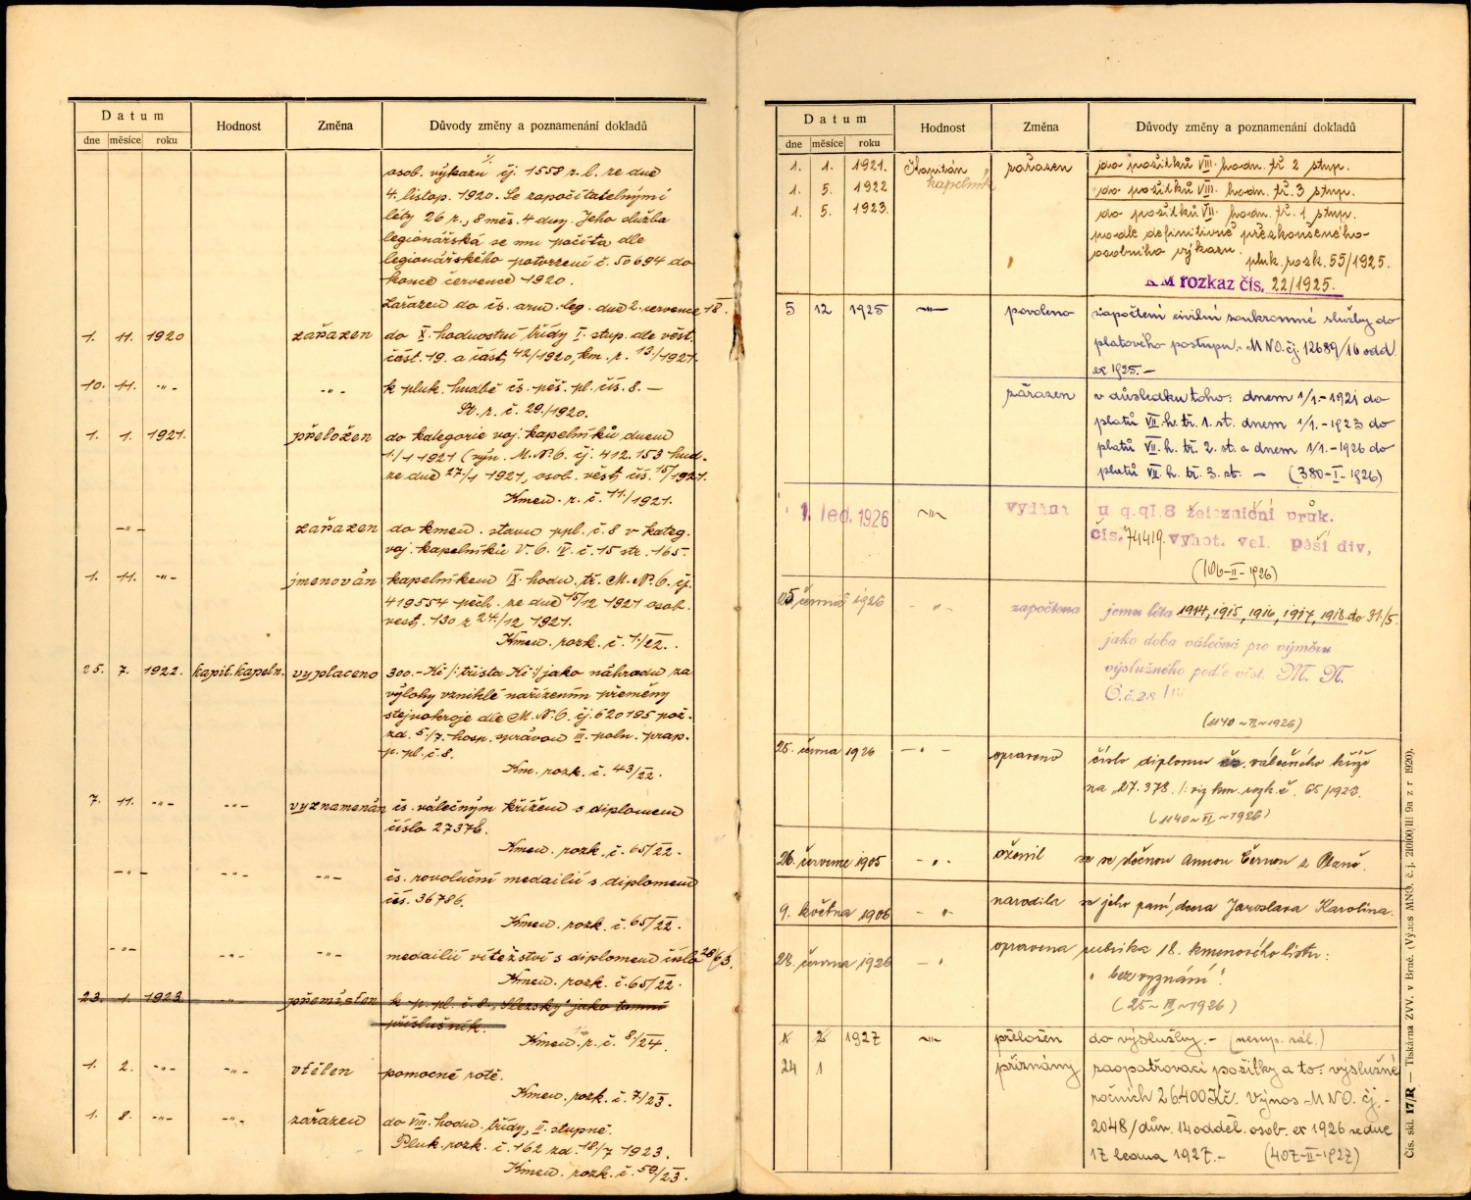 Datum Hodnost Změna Důvody změny a poznamenání dokladů
dne měsíce roku
%
osob. výkazu čj. 1558 r. l. ze dne
4. listop. 1920. Se započítatelnými
léty 26 r., 8 měs. 4 dny. Jeho služba
legionářská se mu počítá dle
legionářského potvrzení č. 50694 do
konce července 1920.
Zařazen do čs. arm. leg. dne 2. července 18.
1. 11. 1920 zařazen do X. hodnostní třídy I. stup. dle věst.
část. 19. a část. 42/1920, km. r. 13./1921.
10. 11. -"- -"- k pluk. hudbě čs. pěš. pl. čís. 8. —
St. r. č. 29./1920.
1. 1. 1921. přeložen do kategorie voj. kapelníků dnem
1./1 1921 (výn. M.N.O. čj. 412.153 hud.
ze dne 27./1 1921, osob. věst. čís. 15/1921.
Kmen. r. č. 11./1921.
-"- zařazen do kmen. stavu ppl. č. 8 v kateg.
voj. kapelníků V. O. IV. č. 15 str. 165.
1. 11. -"- jmenován kapelníkem IX. hodn. tř. M.N.O. čj.
419554 pěch. ze dne 15/12 1921 osob.
vest. 130 z 24/12 1921.
Kmen. rozk. č. 1./22.
25. 7. 1922. kapit. kapeln. vyplaceno 300.- Kč /: třista Kč :/ jako náhradu za
výlohy vzniklé nařízením přeměny
stejnokroje dle M.N.O. čj. 620195 poč.
zd. 5/7. hosp. správou III. poln. prap.
p. pl. č. 8.
Km. rozk. č. 43/22.
7. 11. -"- -"- vyznamenán čs. válečným křížem s diplomem
číslo 27376.
Kmen. rozk. č. 65/22.
-"- -"- čs. revoluční medailií s diplomem
čís. 36786.
Kmen. rozk. č. 65/22.
-"- -"- -"- medailií vítězství s diplomem číslo
Kmen. rozk. č. 65/22.
23. 1. 1923 -"- přemístěn k p. pl. č. 8 „Slezský" jako tamní
příslušník.
Kmen. r. č. 8/24.
1. 2. -"- -"- vtělen pomocné rotě.
Kmen. rozk. č. 7/23.
1. 8. -"- -"- zařazen do VIII. hodn. třídy, II. stupně.
Pluk. rozk. č. 162 zd. 18/7 1923.
Kmen. rozk. č. 50/23.
Datum Hodnost Změna Důvody změny a poznamenání dokladů
dne měsíce roku
1. 1. 1921. Kapitán zařazen do požitků VIII. hodn. tř. 2 stup.
kapelník
1. 5. 1922 do požitků VIII. hodn. tř. 3 stup.
1. 5. 1923. do požitků VII. hodn. tř. 1 stup.
podle definitivně přezkoušeného
osobního výkazu.
pluk. rozk. 55/1925.
KM rozkaz čís. 22/1925.
5 12 1925 -"- povoleno započtení civilní soukromné služby do
platového postupu. - MNO. čj. 12689/16 odd
ex 1925. -
zařazen v důsledku toho: dnem 1/1. - 1921 do
platů VII. h. tř. 1. st. dnem 1/1. - 1923 do
platů VII. h. tř. 2. st. a dnem 1/1. - 1926 do
platů VII. h. tř. 3. st. — (380-I-1926)
1. led. 1926 -"- vydána u q.ql.8 železniční průk.
čís. 74419. vyhot. vel. pěší div,
(106-II-1926)
června 1926 - " - započtena jemu léta 1914, 1915, 1916, 1917, 1918. do 31/5.
jako doba válečná pro výměru
výslužného podle věst. M. N.
O. č. 28
25. června 1926 - " - opraveno číslo diplomu čs. válečného kříže
na „27.378. /: viz km. rozk. č. 65/1923.
(1140 ~ VI ~ 1926)
26. července 1905 - " - oženil se se slečnou Annou Černou z
9. května 1906 - " - narodila se jeho paní, dcera Jaroslava Karolina.
28. června 1926 - " opravena rubrika 18. kmenového listu:
„ bez vyznání".
(25 ~ III ~ 1926)
1 2 1927 -"- přeložen do výslužby. -
24 1 přiznány zaopatřovací požitky a to: výslužné
ročních 26.400 Kč. Výnos - MNO. čj. -
2048/dův. 14 odděl. osob. ex 1926 ze dne
17 ledna 1927. - (407-II-1927)
Čís. skl. 17/R — Tiskárna ZVV. v Brně. (Výnos MNO. č. j. 210100/III 9a z r. 1920).